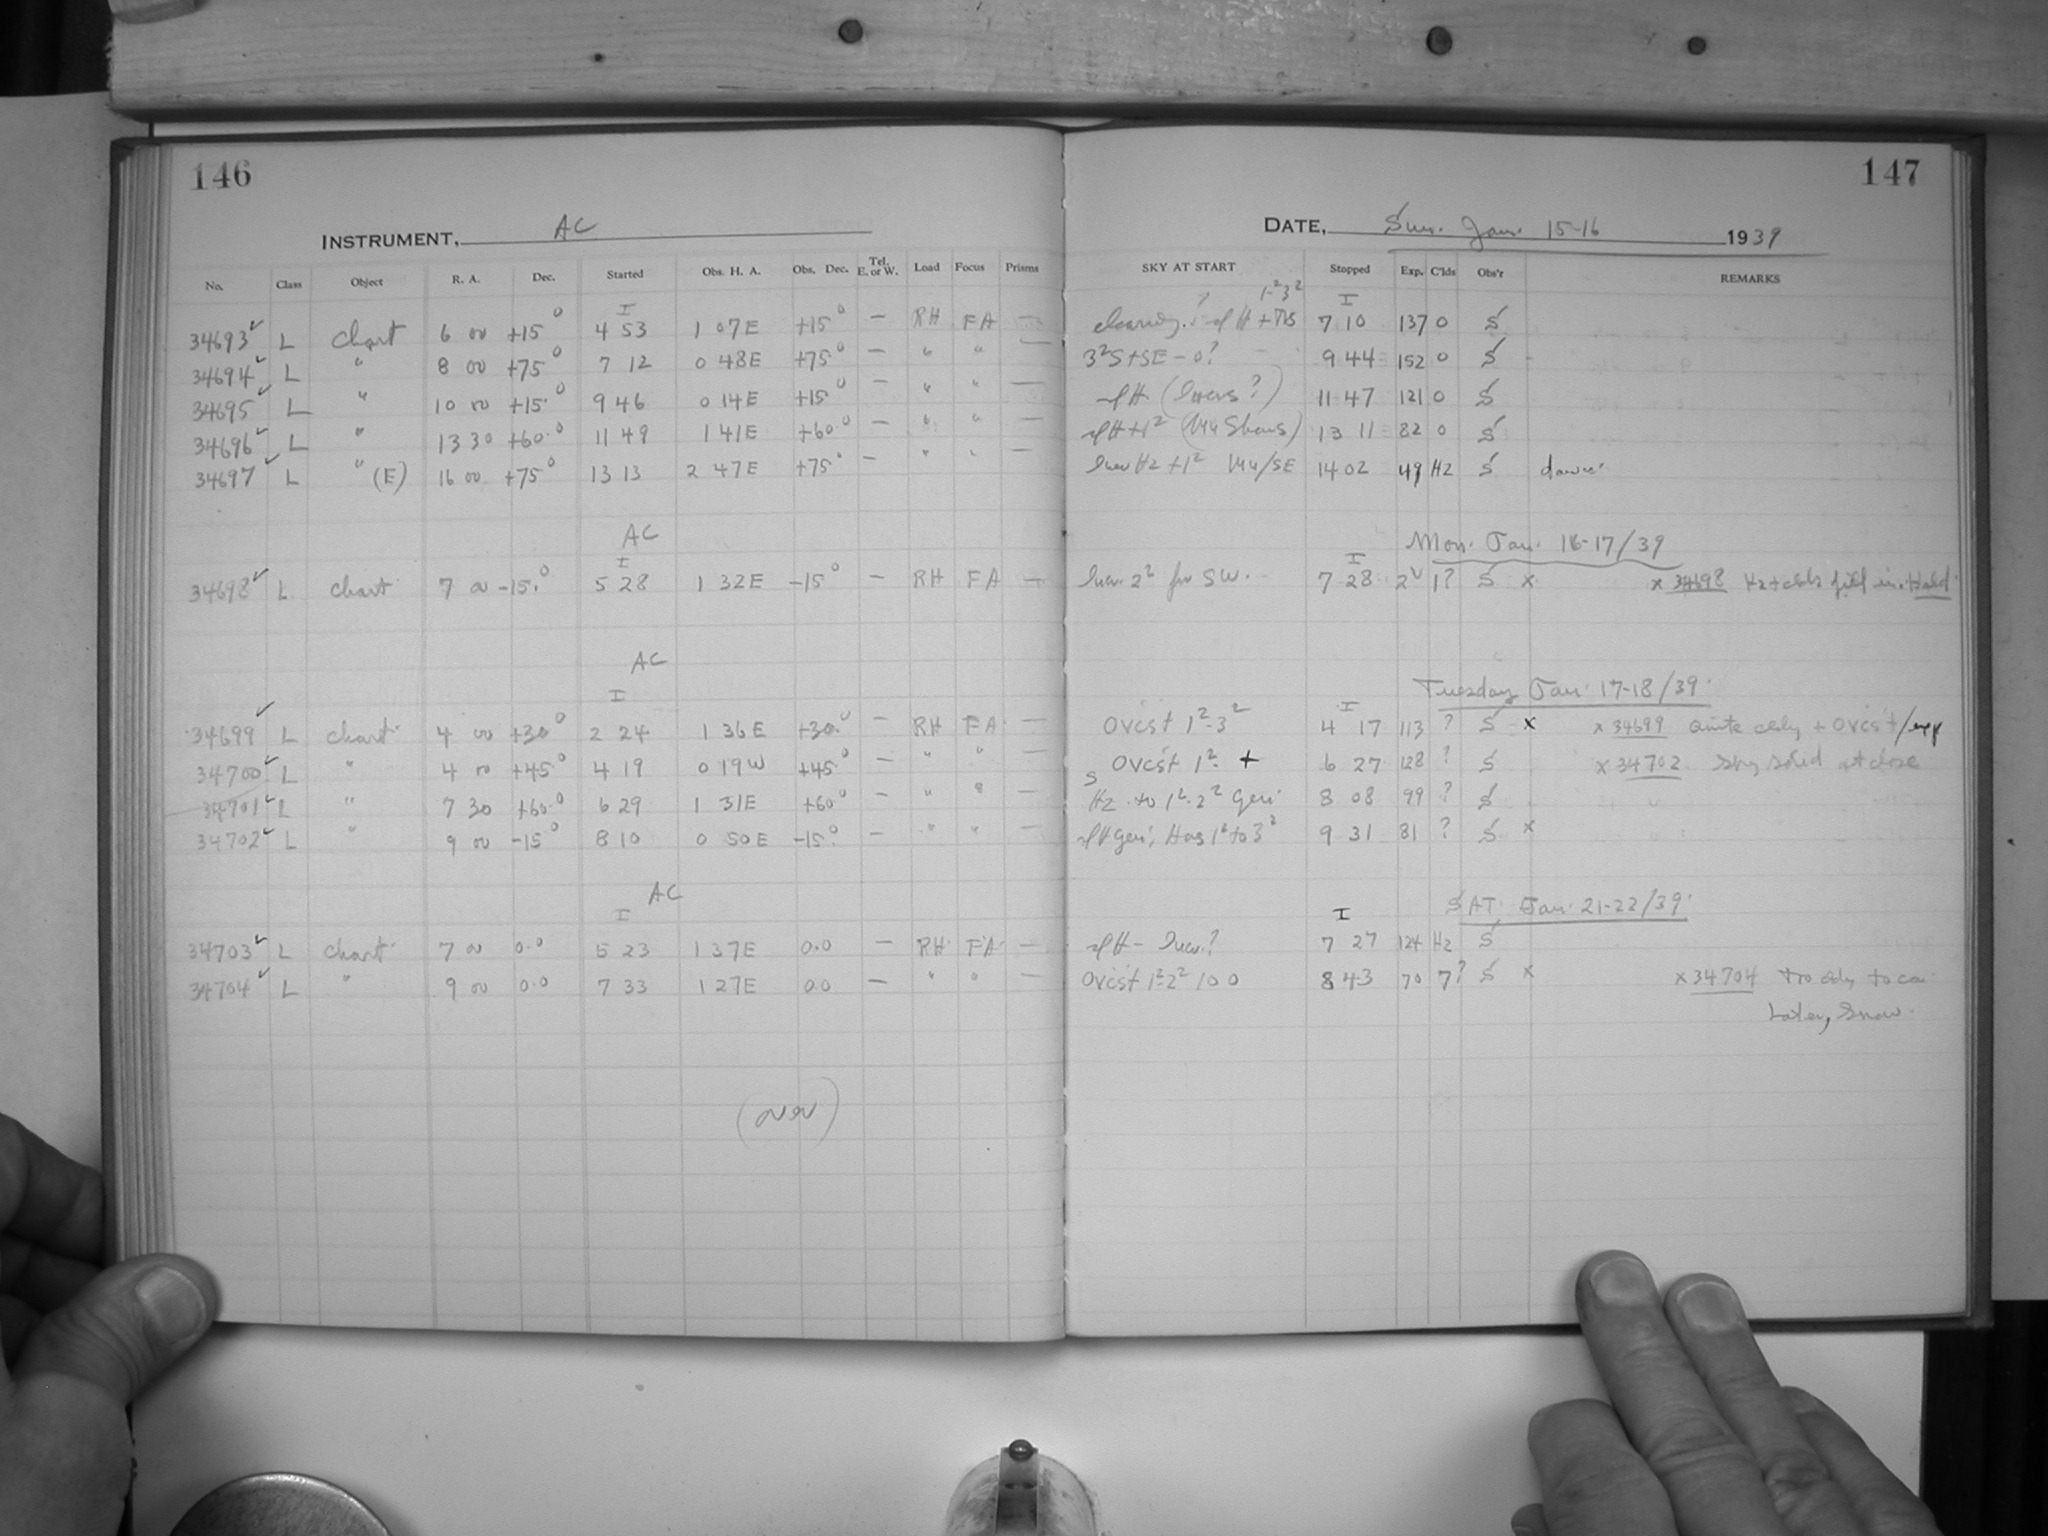 146
INSTRUMENT, AC
No. Class Object R. A. Dec. Started Obs. H. A. Obs. Dec. Tel. E. or W. Load Focus Prisms
I
34693 ✓ L Chart 6 00 +15° 4 53 1 07E +15° — RH FA —
34694 ✓ L " 8 00 +75° 7 12 0 48E +75° — " " —
34695 ✓ L " 10 00 +15° 9 46 0 14E +15° — " " —
34696 ✓ L " 13 30 +60.0 11 49 1 41E +60.0 — " " —
34697 ✓ L " (E) 16 00 +75° 13 13 2 47E +75° — " " —
AC
I
34698 ✓ L chart 7 00 -15.0 5 28 1 32E -15° — RH FA —
AC
I
34699 ✓ L chart 4 00 +30° 2 24 1 36E +30.0 — RH FA —
34700 ✓ L " 4 00 +45.0 4 19 0 19W +45.0 — " " —
34701 ✓ L " 7 30 +60.0 6 29 1 31E +60° — " " —
34702 ✓ L " 9 00 -15° 8 10 0 50E -15.0 — " " —
AC
I
34703 ✓ L chart 7 00 0.0 5 23 1 37E 0.0 — RH FA —
34704 ✓ L " 9 00 0.0 7 33 1 27E 0.0 — " " —
147
DATE, Sun. Jan. 15-16 1939
SKY AT START Stopped Exp. C'lds Obs'r REMARKS
I
7 10 137 0 S
3²S+SE-0? 9 44 152 0 S
11 47 121 0 S
13 11 82 0 S
14 02 49 Hz S dawn
Mon. Jan. 16-17/39
I
2² for SW. 7 28 1? S x x 34698 Hz + clds
Tuesday Jan. 17-18/39
I
Ovcst 1²-3² 4 17 113 ? S x x 34699 Quite cldy + Ovcst/exp
Ovcst 1² + 6 27 128 ? S x 34702 Sky solid at close
Hz to 1²-2² Gen. 8 08 99 ? S
9 31 81 ? S x
SAT. Jan. 21-22/39
I
7 27 124 Hz S
Ovcst 1²-2² 100 8 43 70 7? S x x 34704 Too cldy to
Later, Snow.